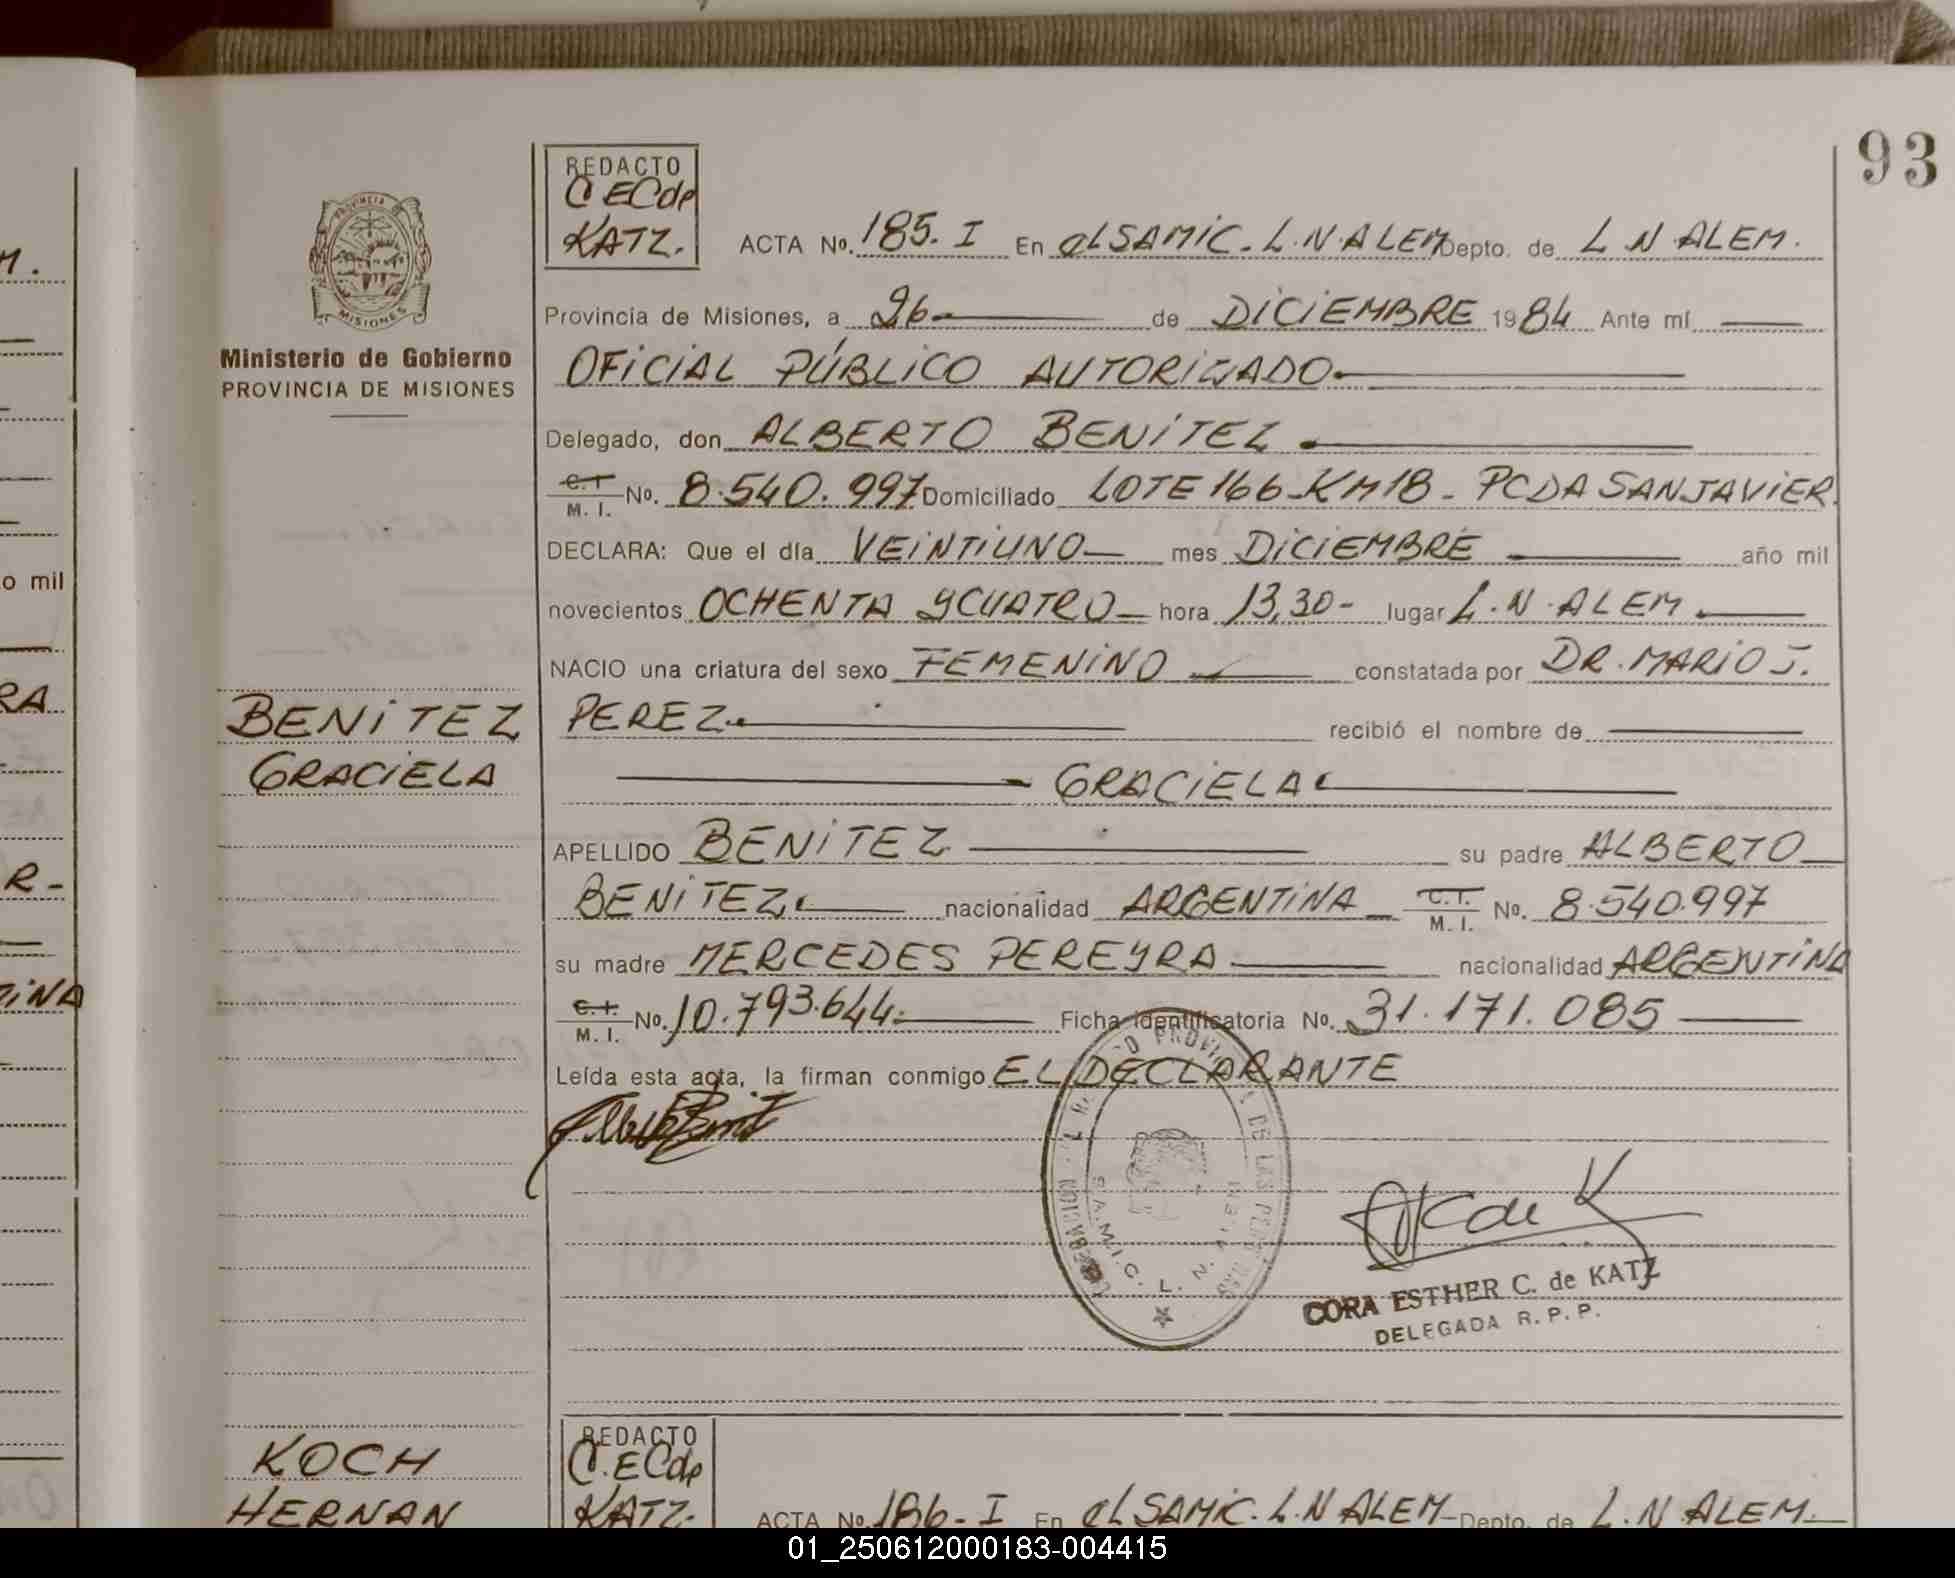 93
REDACTO
C EC de
KATZ.
ACTA No. 185. I En el SAMIC. L.N. ALEM Depto. de L N ALEM.
PROVINCIA
MISIONES
Ministerio de Gobierno
PROVINCIA DE MISIONES
Provincia de Misiones, a 26 de DICIEMBRE 1984 Ante mí
OFICIAL PÚBLICO AUTORIZADO
Delegado, don ALBERTO BENITEZ
C.I. M. I. No. 8.540.997 Domiciliado LOTE 166 KM18 - PCDA SAN JAVIER.
DECLARA: Que el día VEINTIUNO mes DICIEMBRE año mil
novecientos OCHENTA Y CUATRO hora 13,30- lugar L.N. ALEM.
NACIO una criatura del sexo FEMENINO constatada por DR. MARIO J.
PEREZ recibió el nombre de
GRACIELA
BENITEZ
GRACIELA
APELLIDO BENITEZ su padre ALBERTO
BENITEZ nacionalidad ARGENTINA C.I. M. I. No. 8.540.997
su madre MERCEDES PEREYRA nacionalidad ARGENTINA
C.I. M. I. No. 10.793.644 Ficha Identificatoria No. 31.171.085
Leída esta acta, la firman conmigo EL DECLARANTE
DE LAS
S.A.M.I.C. L. N. ALEM
CORA ESTHER C. de KATZ
DELEGADA R. P. P.
KOCH
HERNAN
REDACTO
C. EC de
KATZ.
ACTA No. 186- I En el SAMIC. L.N ALEM Depto. de L.N. ALEM.
M.
o mil
RA
R-
TINA
01_250612000183-004415